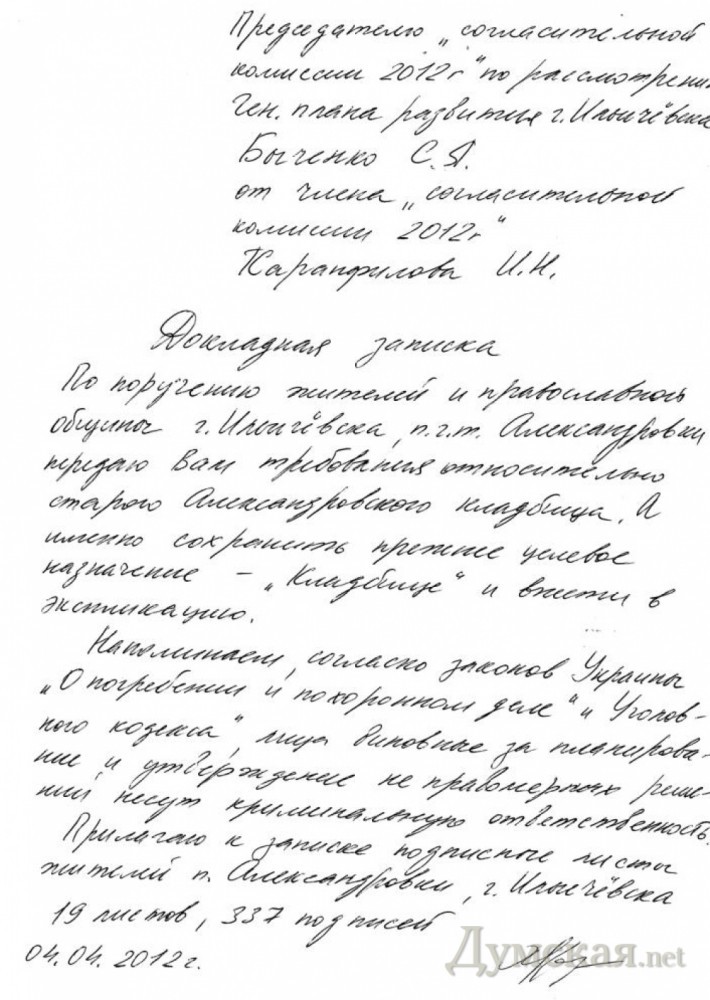 Председателю „согласительной
комиссии 2012г" по рассмотрени
Ген. плана развития г. Ильичёвска
Быченко С.Я.
от члена „согласительной
комиссии 2012г"
Карапфилова И.Н.
Докладная записка
По поручению жителей и православной
общины г. Ильичёвска, п.г.т. Александровки
передаю Вам требования относительно
старого Александровского кладбища. А
именно сохранить прежнее целевое
назначение – „Кладбище" и внести в
экспликацию.
Напоминаем, согласно законов Украины
„О погребении и похоронном деле" и Уголов-
ного кодекса", лица виновные за планирова-
ние и утверждение не правомерных реше-
ний, несут криминальную ответственность.
Прилагаю к записке подписные листы
жителей п. Александровки, г. Ильичёвска
19 листов, 337 подписей
04.04.2012г.
Думская.net